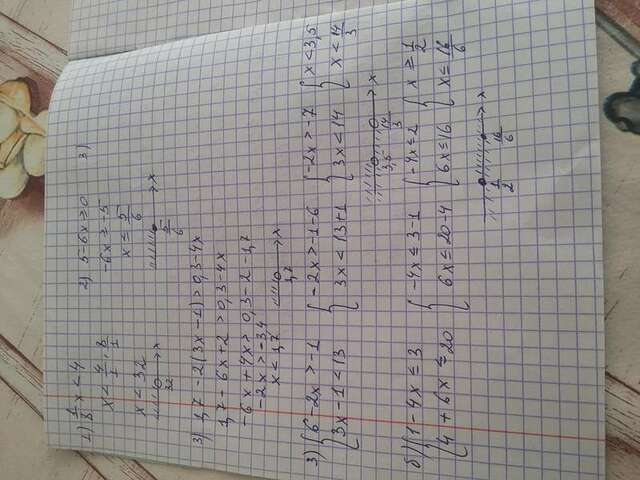 1) 1/8 x < 4
x < 4/1 · 8/1
x < 32
32 x
2) 5-6x ≥ 0
-6x ≥ -5
x ≤ 5/6
5/6 x
3)
3) 1,7 - 2(3x-1) > 0,3-4x
1,7 - 6x+2 > 0,3-4x
-6x + 4x > 0,3-2-1,7
-2x > -3,4
x < 1,7
1,7 x
3) { 6-2x > -1 { -2x > -1-6 { -2x > -7 { x < 3,5
3x-1 < 13 3x < 13+1 3x < 14 x < 14/3
3,5 14/3 x
б) { 1-4x ≤ 3 { -4x ≤ 3-1 { -4x ≤ 2 { x ≥ 1/2
4+6x ≤ 20 6x ≤ 20-4 6x ≤ 16 x ≤ 16/6
1/2 16/6 x